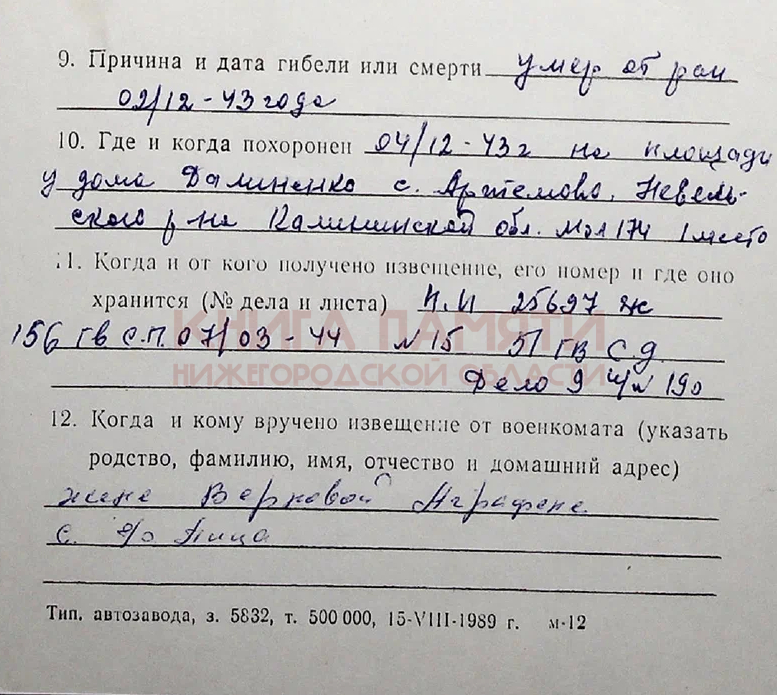 9. Причина и дата гибели или смерти умер от ран
02/12-43 года
10. Где и когда похоронен 04/12-43 г на площади
у дома Далиненко с. Артемово, Невель-
ского р-на Калининской обл. Мог 174 1 место
11. Когда и от кого получено извещение, его номер и где оно
хранится (№ дела и листа) П.П 25697 ж
КНИГА ПАМЯТИ
156 гв с.п. 07/03-44 №15 51 гв с.д.
НИЖЕГОРОДСКОЙ ОБЛАСТИ
Дело 9 190
12. Когда и кому вручено извещение от военкомата (указать
родство, фамилию, имя, отчество и домашний адрес)
жене Верховой Аграфене
с.
Тип. автозавода, з. 5832, т. 500 000, 15-VIII-1989 г. м-12